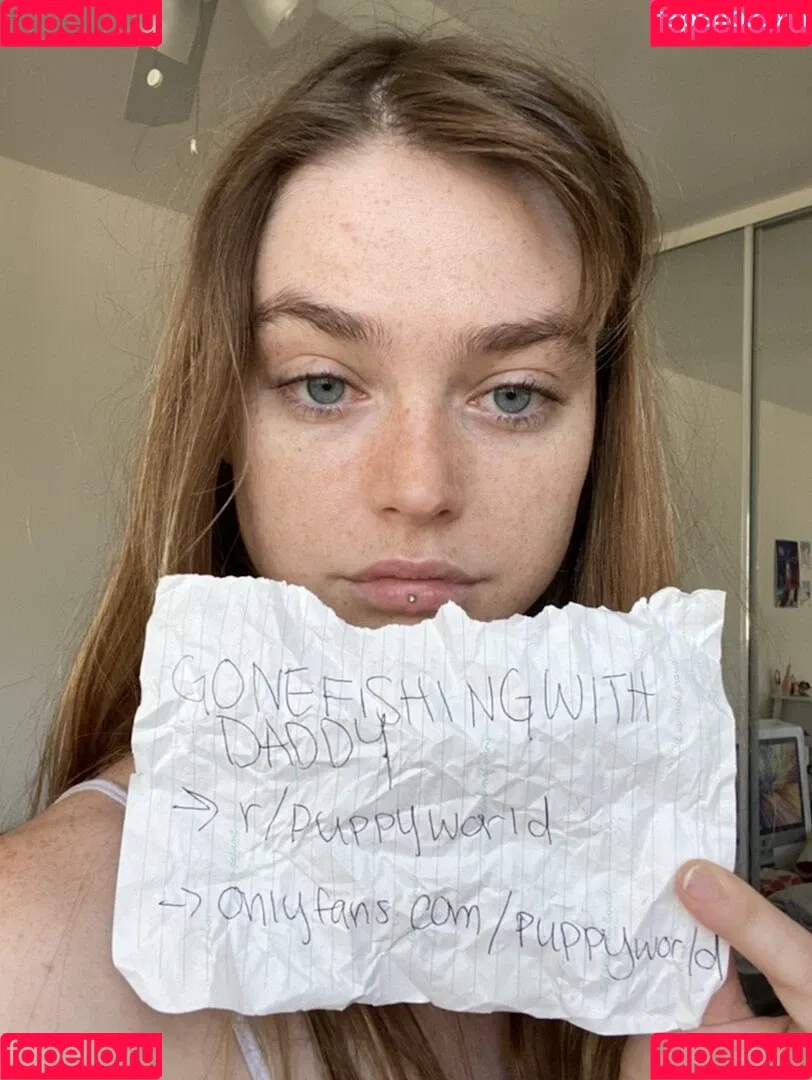 fapello.ru fapello.ru
GONEFISHINGWITH
DADDY
-> r/puppyworld
-> onlyfans.com/puppyworld
fapello.ru fapello.ru